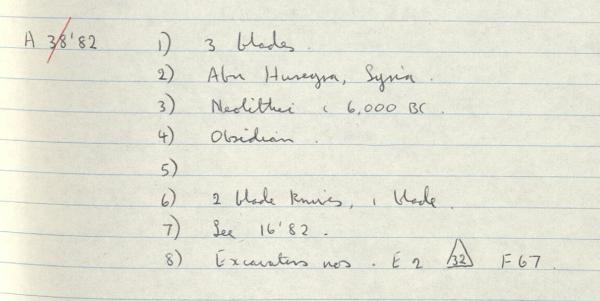 A 38'82 1) 3 blades.
2) Abu Hureyra, Syria.
3) Neolithic c 6,000 BC.
4) Obsidian.
5)
6) 2 blade knives, 1 blade.
7) See 16'82.
8) Excavators nos. E 2 32 F 67